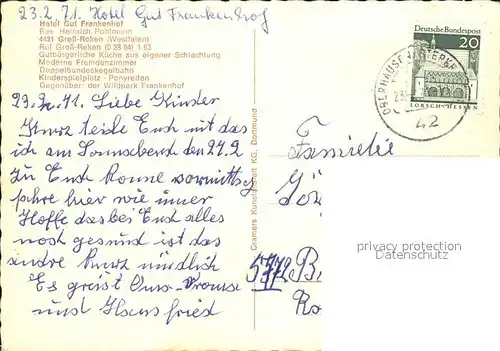 23.2.71. Hotel Gut Frankenhof
Hotel Gut Frankenhof
Bes. Heinrich Pohlmann
4421 Groß-Reken (Westfalen)
Ruf Groß-Reken (0 28 64) 1 63
Gutbürgerliche Küche aus eigener Schlachtung
Moderne Fremdenzimmer
Doppelbundeskegelbahn
Kinderspielplatz - Ponyreiten
Gegenüber: der Wildpark Frankenhof
23.2.71. Liebe Kinder
Kurz teile Euch mit das
ich am Sonnabend den 27.2
zu Euch komme vormittag
fahre hier wie immer
Hoffe das bei Euch alles
noch gesund ist das
andre kurz mündlich
Es grüsst Oma
und Hansfried
Cramers Kunstanstalt KG, Dortmund
Deutsche Bundespost
20
LORSCH/HESSEN
OBERHAUSEN
42
Familie
5772
privacy protection
Datenschutz